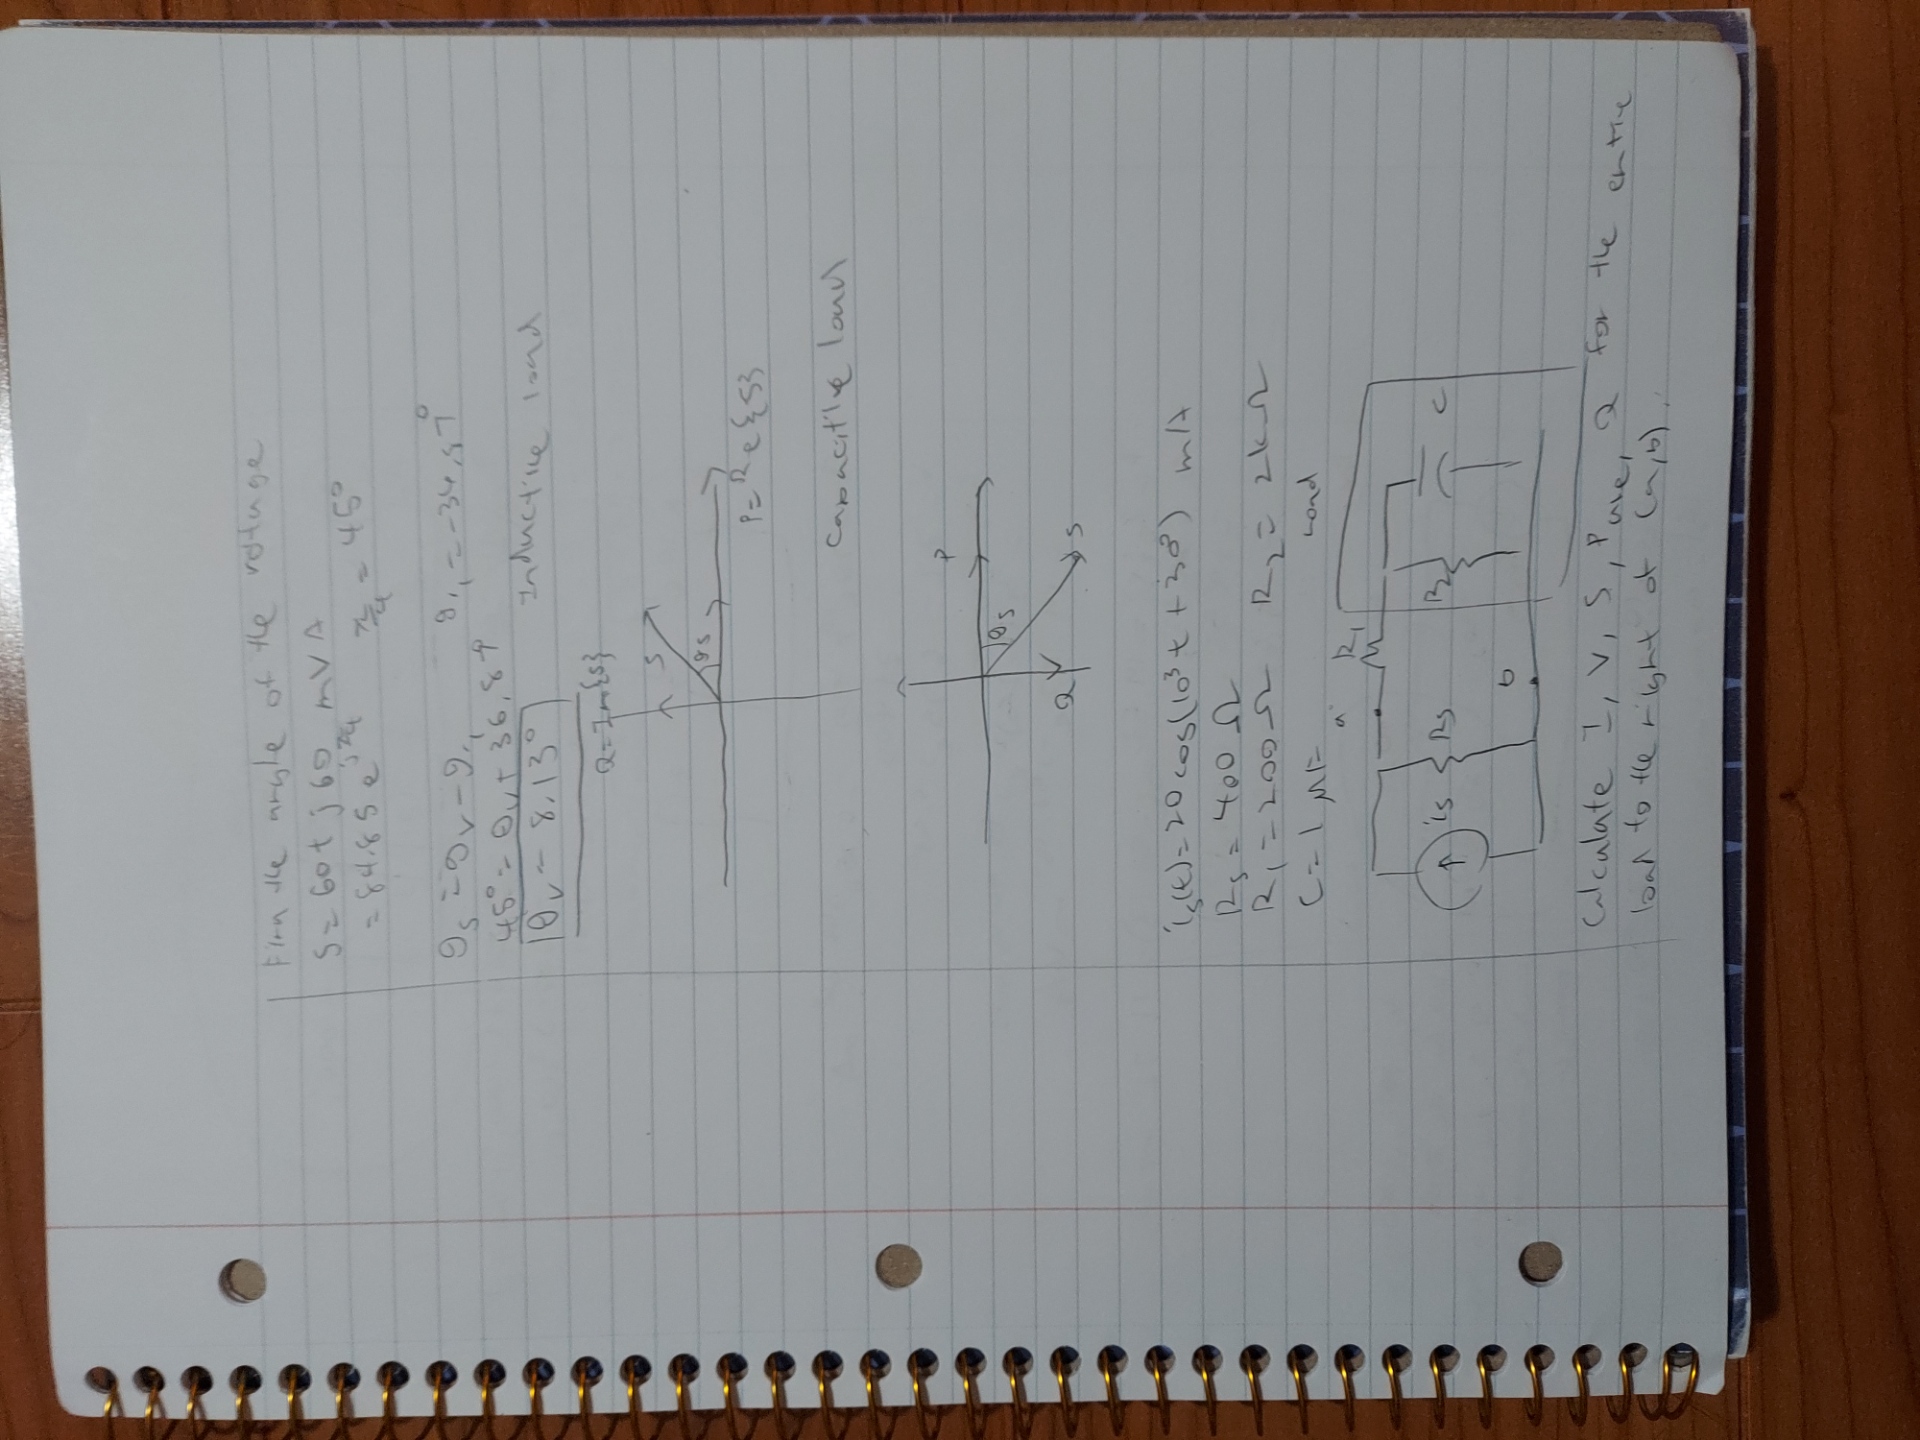 Find the angle of the voltage
S = 60 + j 60 mVA
= 84.85 e^jπ/4 π/4 = 45°
θs = θv - θi, θi, = -36.87°
45° = θv + 36.87
θv = 8.13° Inductive load
Q = Im{S}
S
θs
P = Re{S}
Capacitive load
P
θs
Q
S
is(t) = 20 cos(10³t + 30°) mA
Rs = 400 Ω
R1 = 200 Ω R2 = 2k Ω
C = 1 μF Load
a R1
is Rs R2 C
b
Calculate I, V, S, Pave, Q for the entire
load to the right of (a,b).